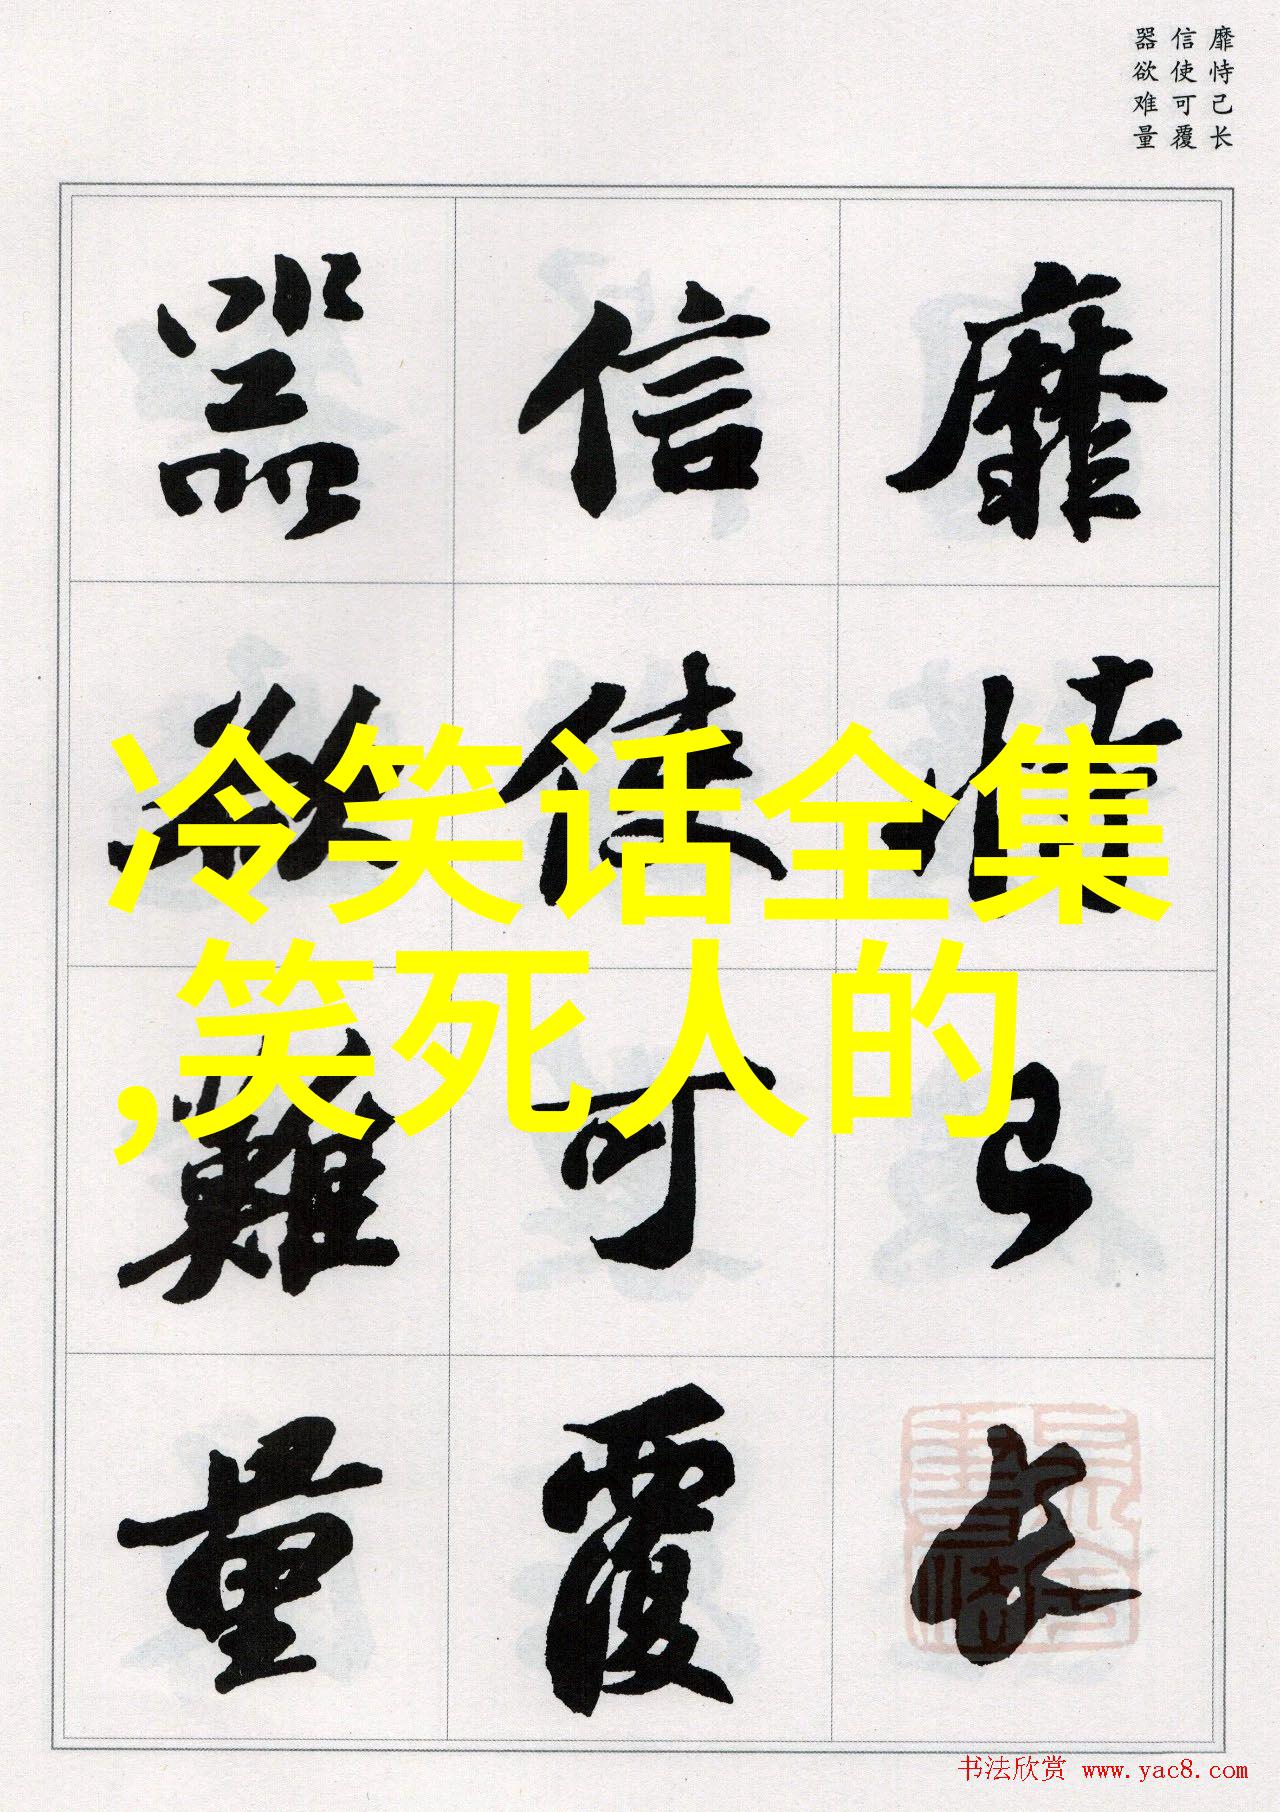 靡恃己长
信使可覆
器欲难量
靡恃己長
信使可覆
器欲難量
冷笑话全集
,笑死人的
书法欣赏 www.yac8.com